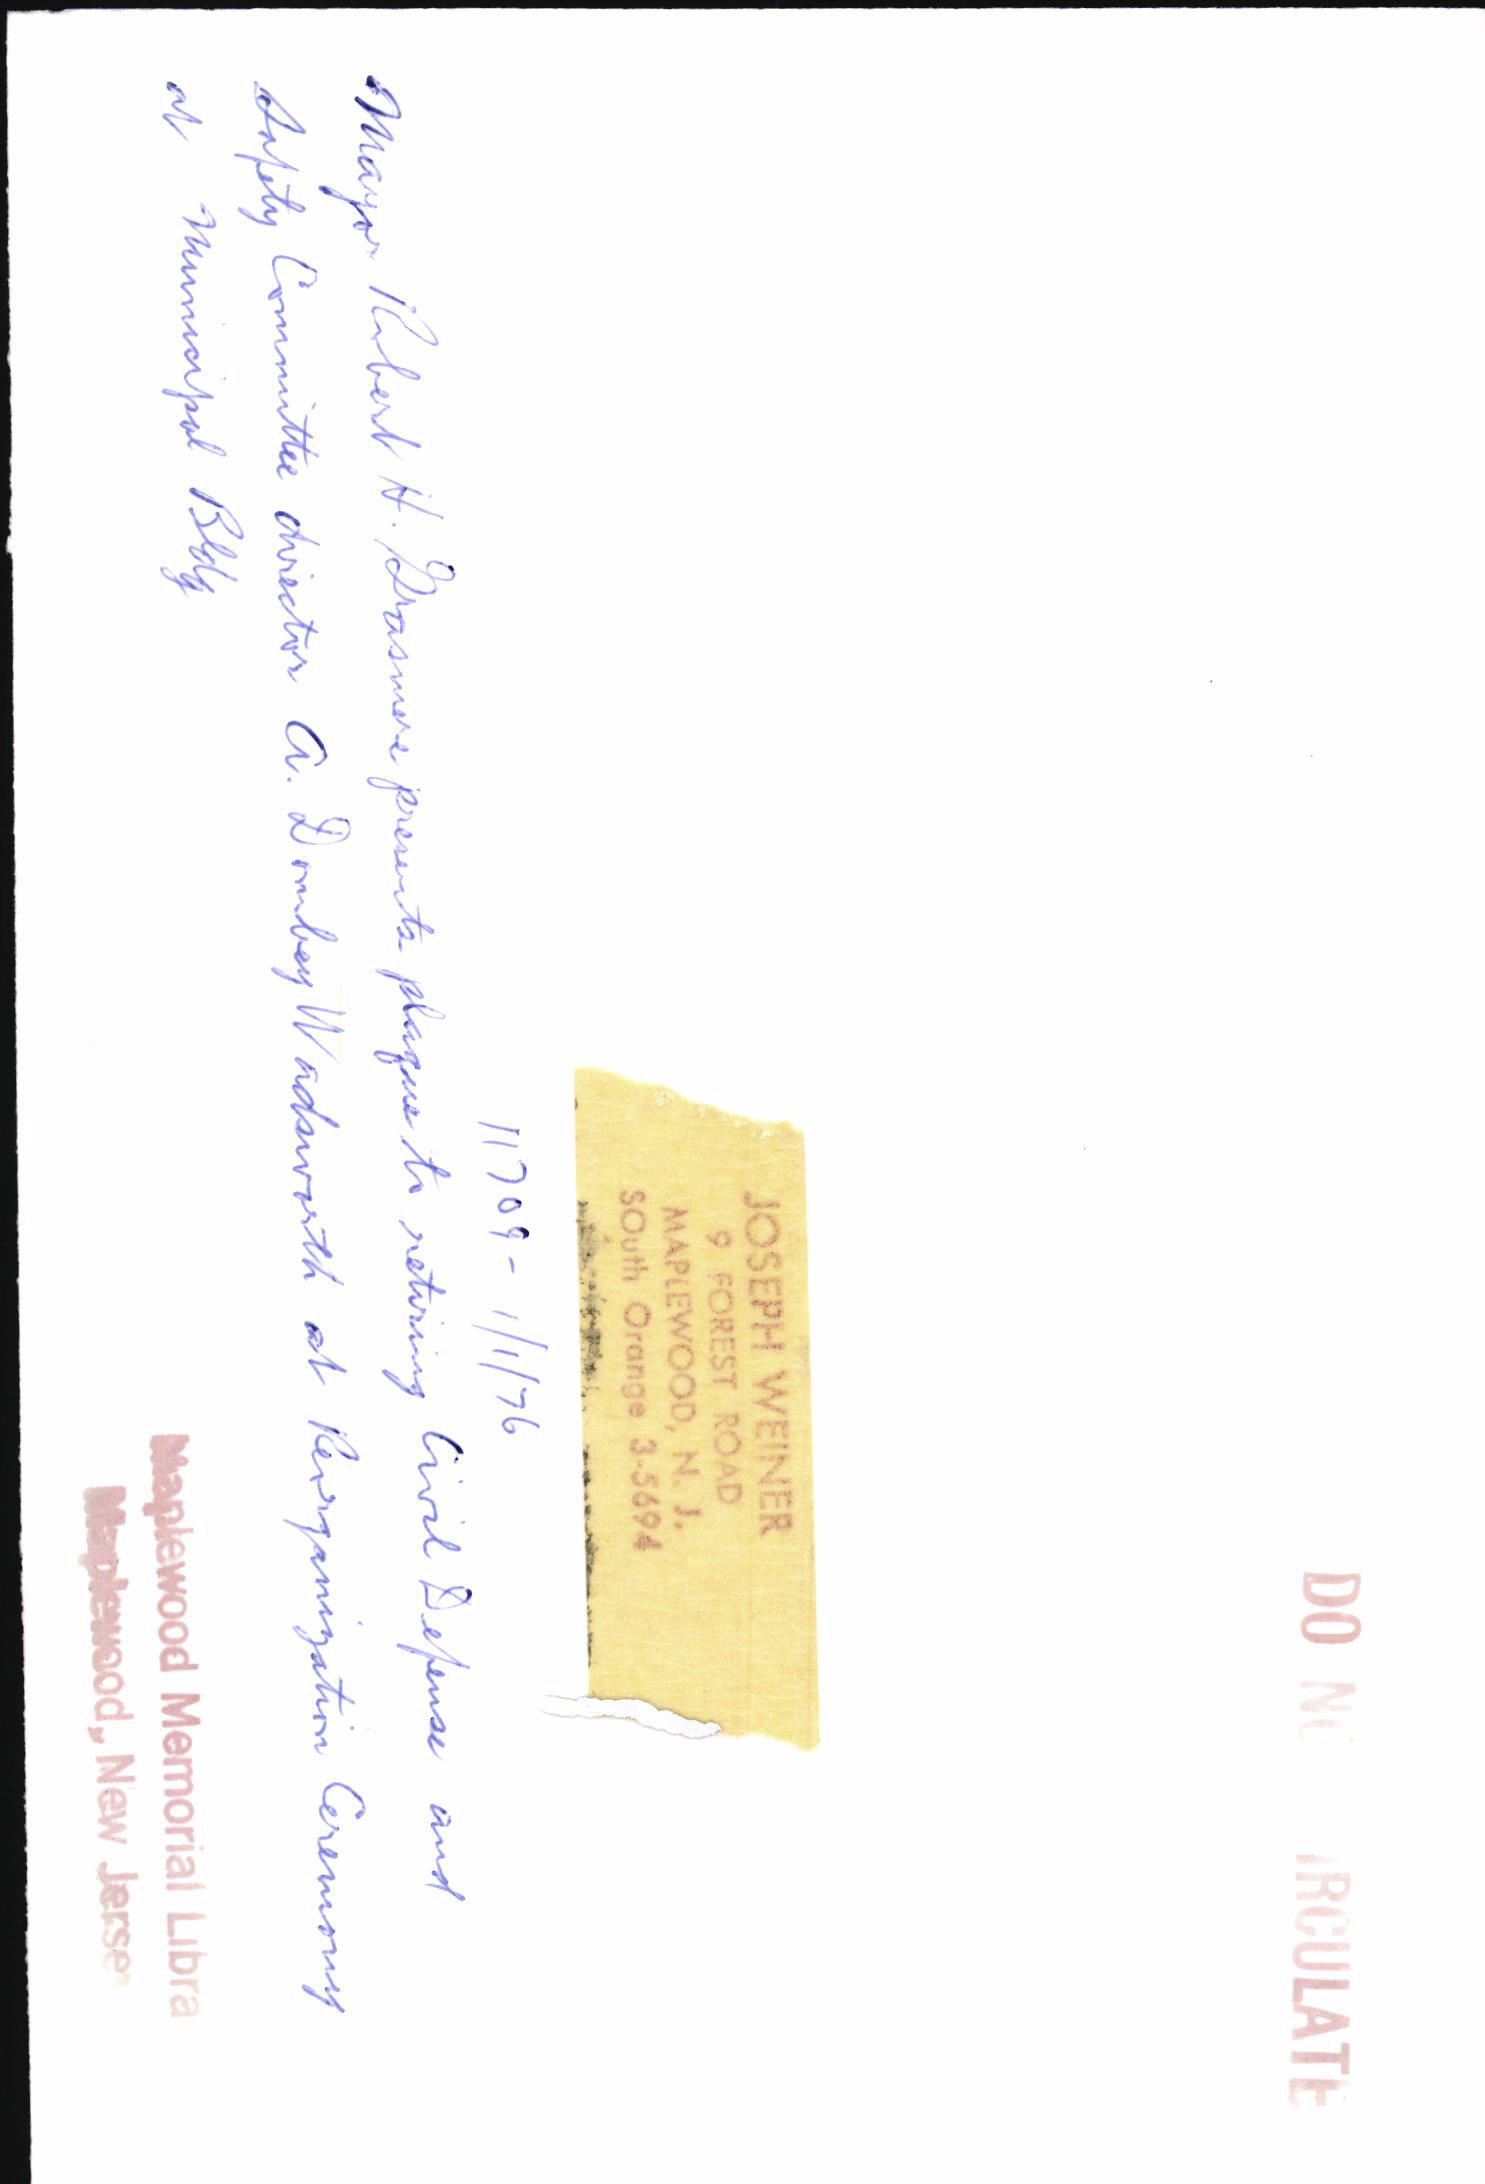 DO NO IRCULATE
JOSEPH WEINER
9 FOREST ROAD
MAPLEWOOD, N. J.
SOuth Orange 3-5694
11709 - 1/1/76
Mayor Robert H. Grasmere presents plaque to retiring Civil Defense and
Safety Committee director A. Dombey Wadsworth at Reorganization Ceremony
at Municipal Bldg
Maplewood Memorial Libra
Maplewood, New Jerse